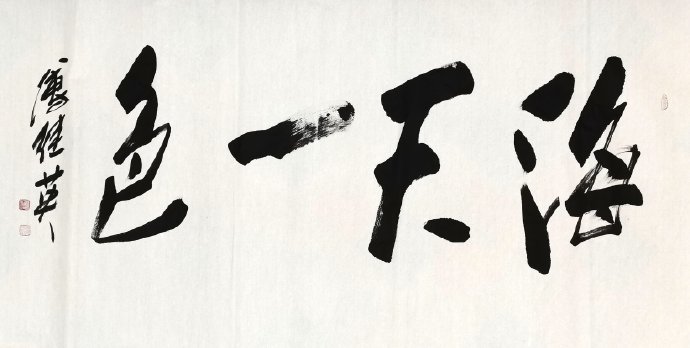 海天一色
傅继英